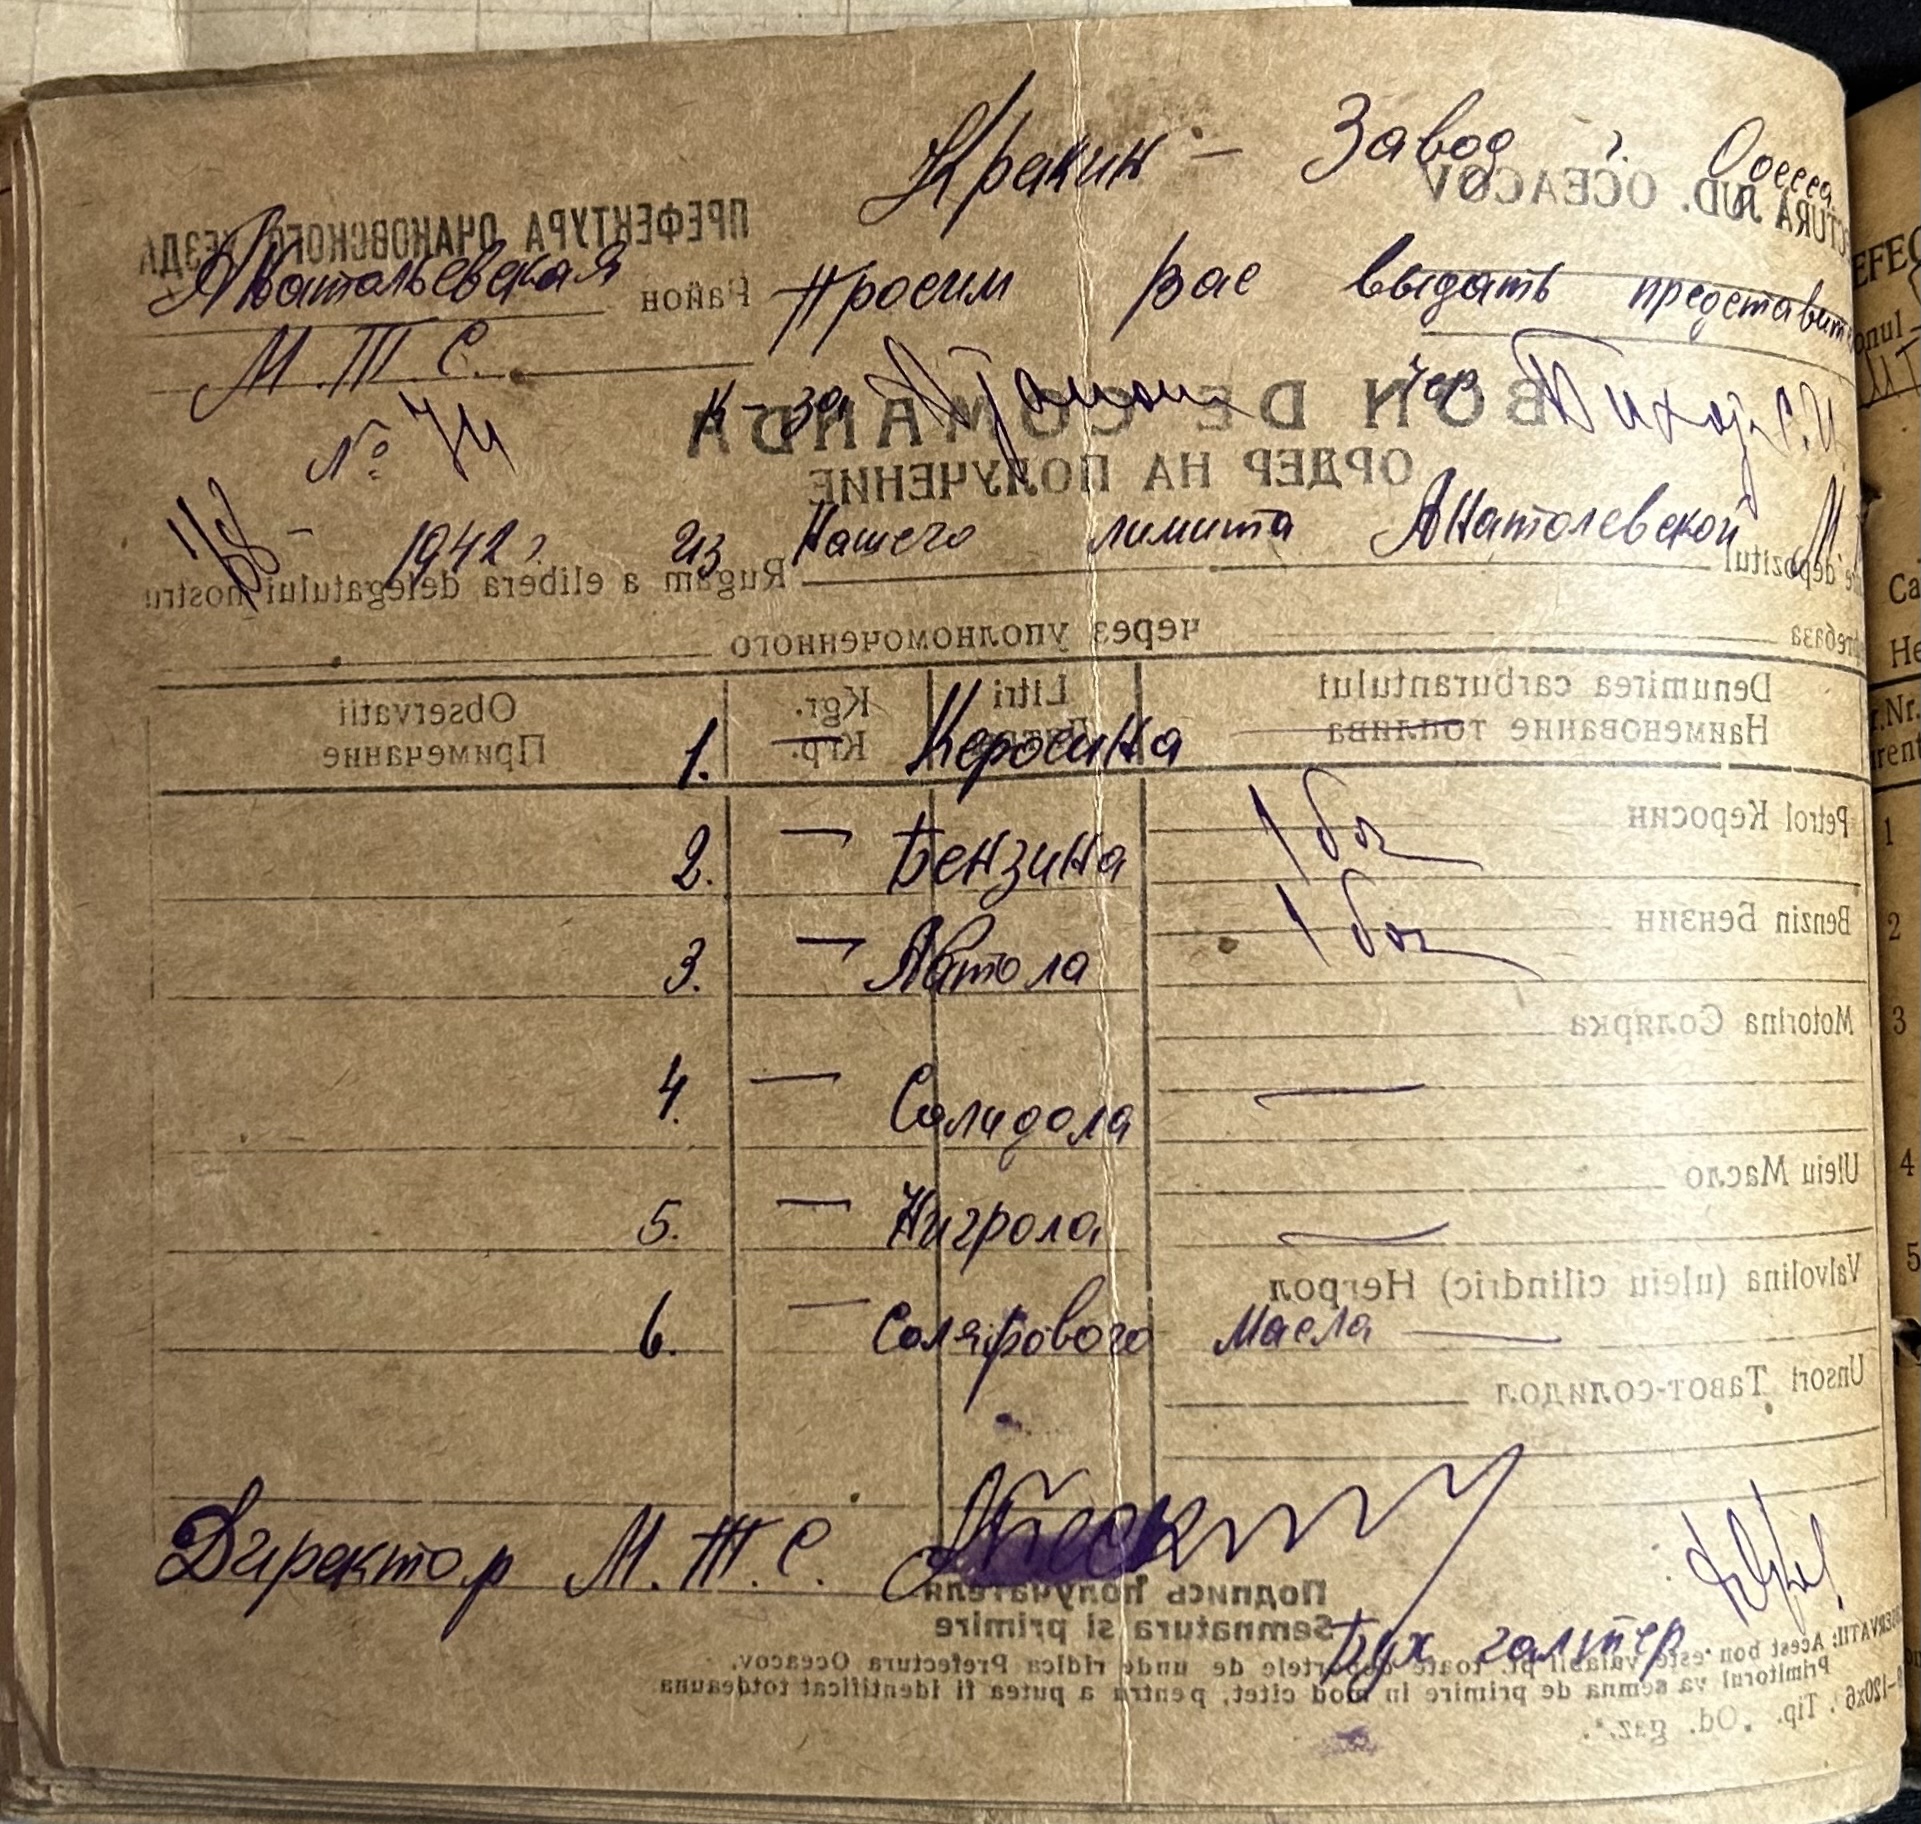 Кракин - Завод г. Одесса
Анатольевская
М. Т. С.
№ 74
1942 г.
Просим вас выдать представит
к-за чер
из нашего лимита Анатолевской М.
1. Керосина
2. — Бензина 1 боч
3. — Автола 1 боч
4. — Солидола —
5. — Нигрола —
6. — Солярового Масла —
Директор М. Т. С.
Бухгалтер
PREFECTURA JUD. OCEACOV
ПРЕФЕКТУРА ОЧАКОВСКОГО УЕЗДА
Район
BON DE COMANDA
ОРДЕР НА ПОЛУЧЕНИЕ
depozitul Rugam a elibera delegatului nostru
через уполномоченного
Denumirea carburantului Litri Kgr. Observatii
Наименование топлива Литры Кгр. Примечание
Petrol Керосин
Benzin Бензин
Motorina Солярка
Uleiu Масло
Valvolina (uleiu cilindric) Негрол
Unsori Тавот-солидол
Подпись получателя
Semnatura si primire
OBSERVATII: Acest bon este valabil pt. toate depourtele de unde ridica Prefectura Oceacov.
Primitorul va semna de primire in mod citet, pentru a putea fi identificat totdeauna
120x6. Tip. „Od. gaz.".
1
2
3
4
5